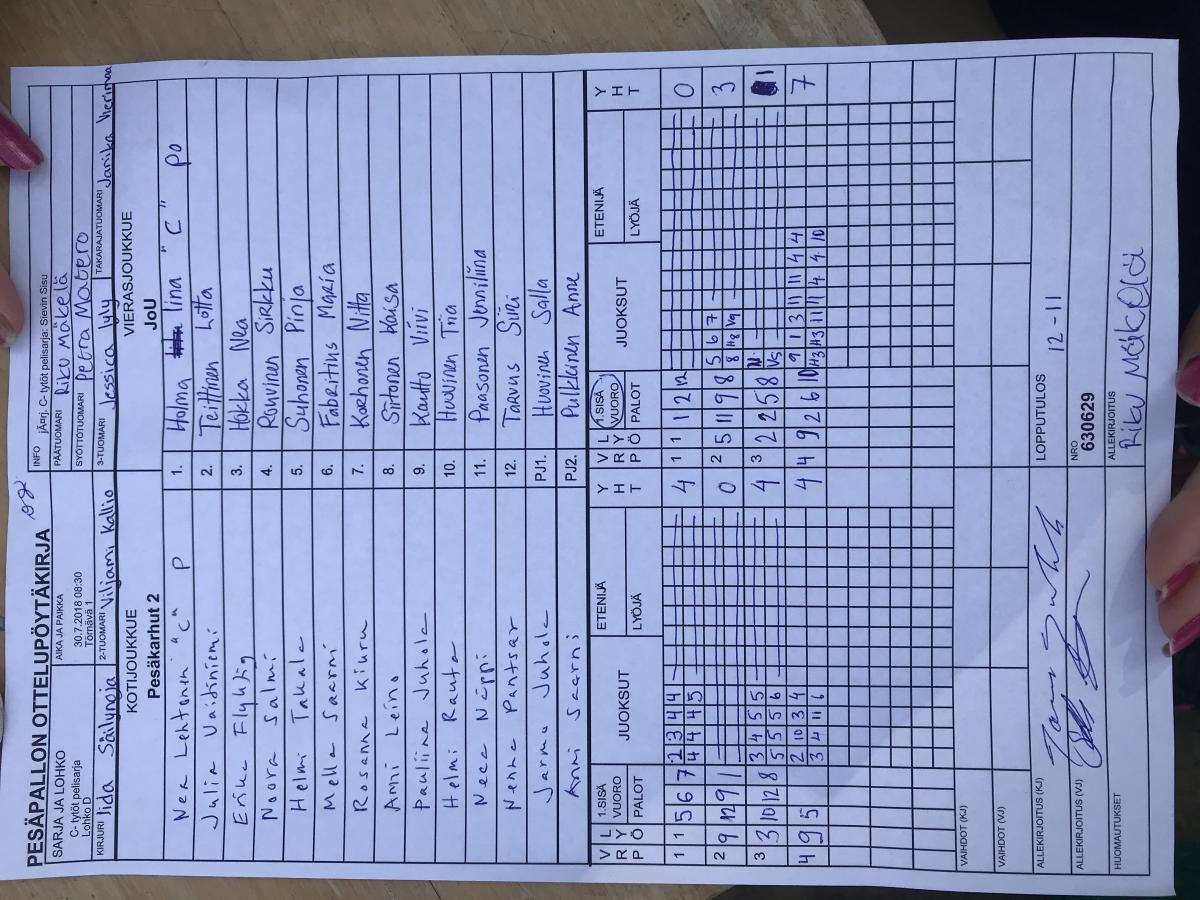 PESÄPALLON OTTELUPÖYTÄKIRJA
SARJA JA LOHKO
C- tytöt pelisarja
Lohko D
AIKA JA PAIKKA
30.7.2018 08:30
Törnävä 1
INFO jÄ¤rj. C- tytöt pelisarja: Sievin Sisu
PÄÄTUOMARI Riku Mäkelä
SYÖTTÖTUOMARI Petra Matero
KIRJURI Iida Säilynoja
2-TUOMARI Viljami Kallio
3-TUOMARI Jessica Jyly
TAKARAJATUOMARI Janika Herimaa
KOTIJOUKKUE
Pesäkarhut 2
VIERASJOUKKUE
JoU
Nea Lehtonen "C" P
1. Holma Iina "C" PO
Julia Vaitiniemi
2. Teittinen Lotta
Erika Flyktig
3. Hokka Nea
Noora Salmi
4. Rouvinen Sirkku
Helmi Takala
5. Suhonen Pinja
Mella Saarni
6. Fabritius Maria
Rosanna Kiuru
7. Korhonen Nitta
Anni Leino
8. Siitonen Kaisa
Pauliina Juhola
9. Kautto Viivi
Helmi Rauta
10. Huovinen Tiia
Neea Näppi
11. Paasonen Jenniliina
Nenna Pantsar
12. Tarvus Siiri
Jarmo Juhola
PJ1. Huovinen Salla
Anni Saarni
PJ2. Pulkkinen Anne
V R P
L Y Ö
1.SISÄ VUORO
PALOT
JUOKSUT
ETENIJÄ
LYÖJÄ
Y H T
V R P
L Y Ö
1.SISÄ VUORO
PALOT
JUOKSUT
ETENIJÄ
LYÖJÄ
Y H T
1 1 5 6 7 2 3 4 4 4
4 4 4 5
1 1 1 2 12 0
2 9 12 9 1 0
2 5 11 9 8 5 6 7 3
8 H8 V9
3 3 10 12 8 3 4 5 5 4
5 5 5 6
3 2 2 5 8 1
V5
4 9 5 2 10 3 4 4
3 4 11 6
4 4 9 2 6 10 9 1 3 11 11 4 4 7
H3 H3 11 11 4 4 10
VAIHDOT (KJ)
VAIHDOT (VJ)
ALLEKIRJOITUS (KJ)
LOPPUTULOS 12-11
ALLEKIRJOITUS (VJ)
NRO
630629
HUOMAUTUKSET
ALLEKIRJOITUS
Riku Mäkelä